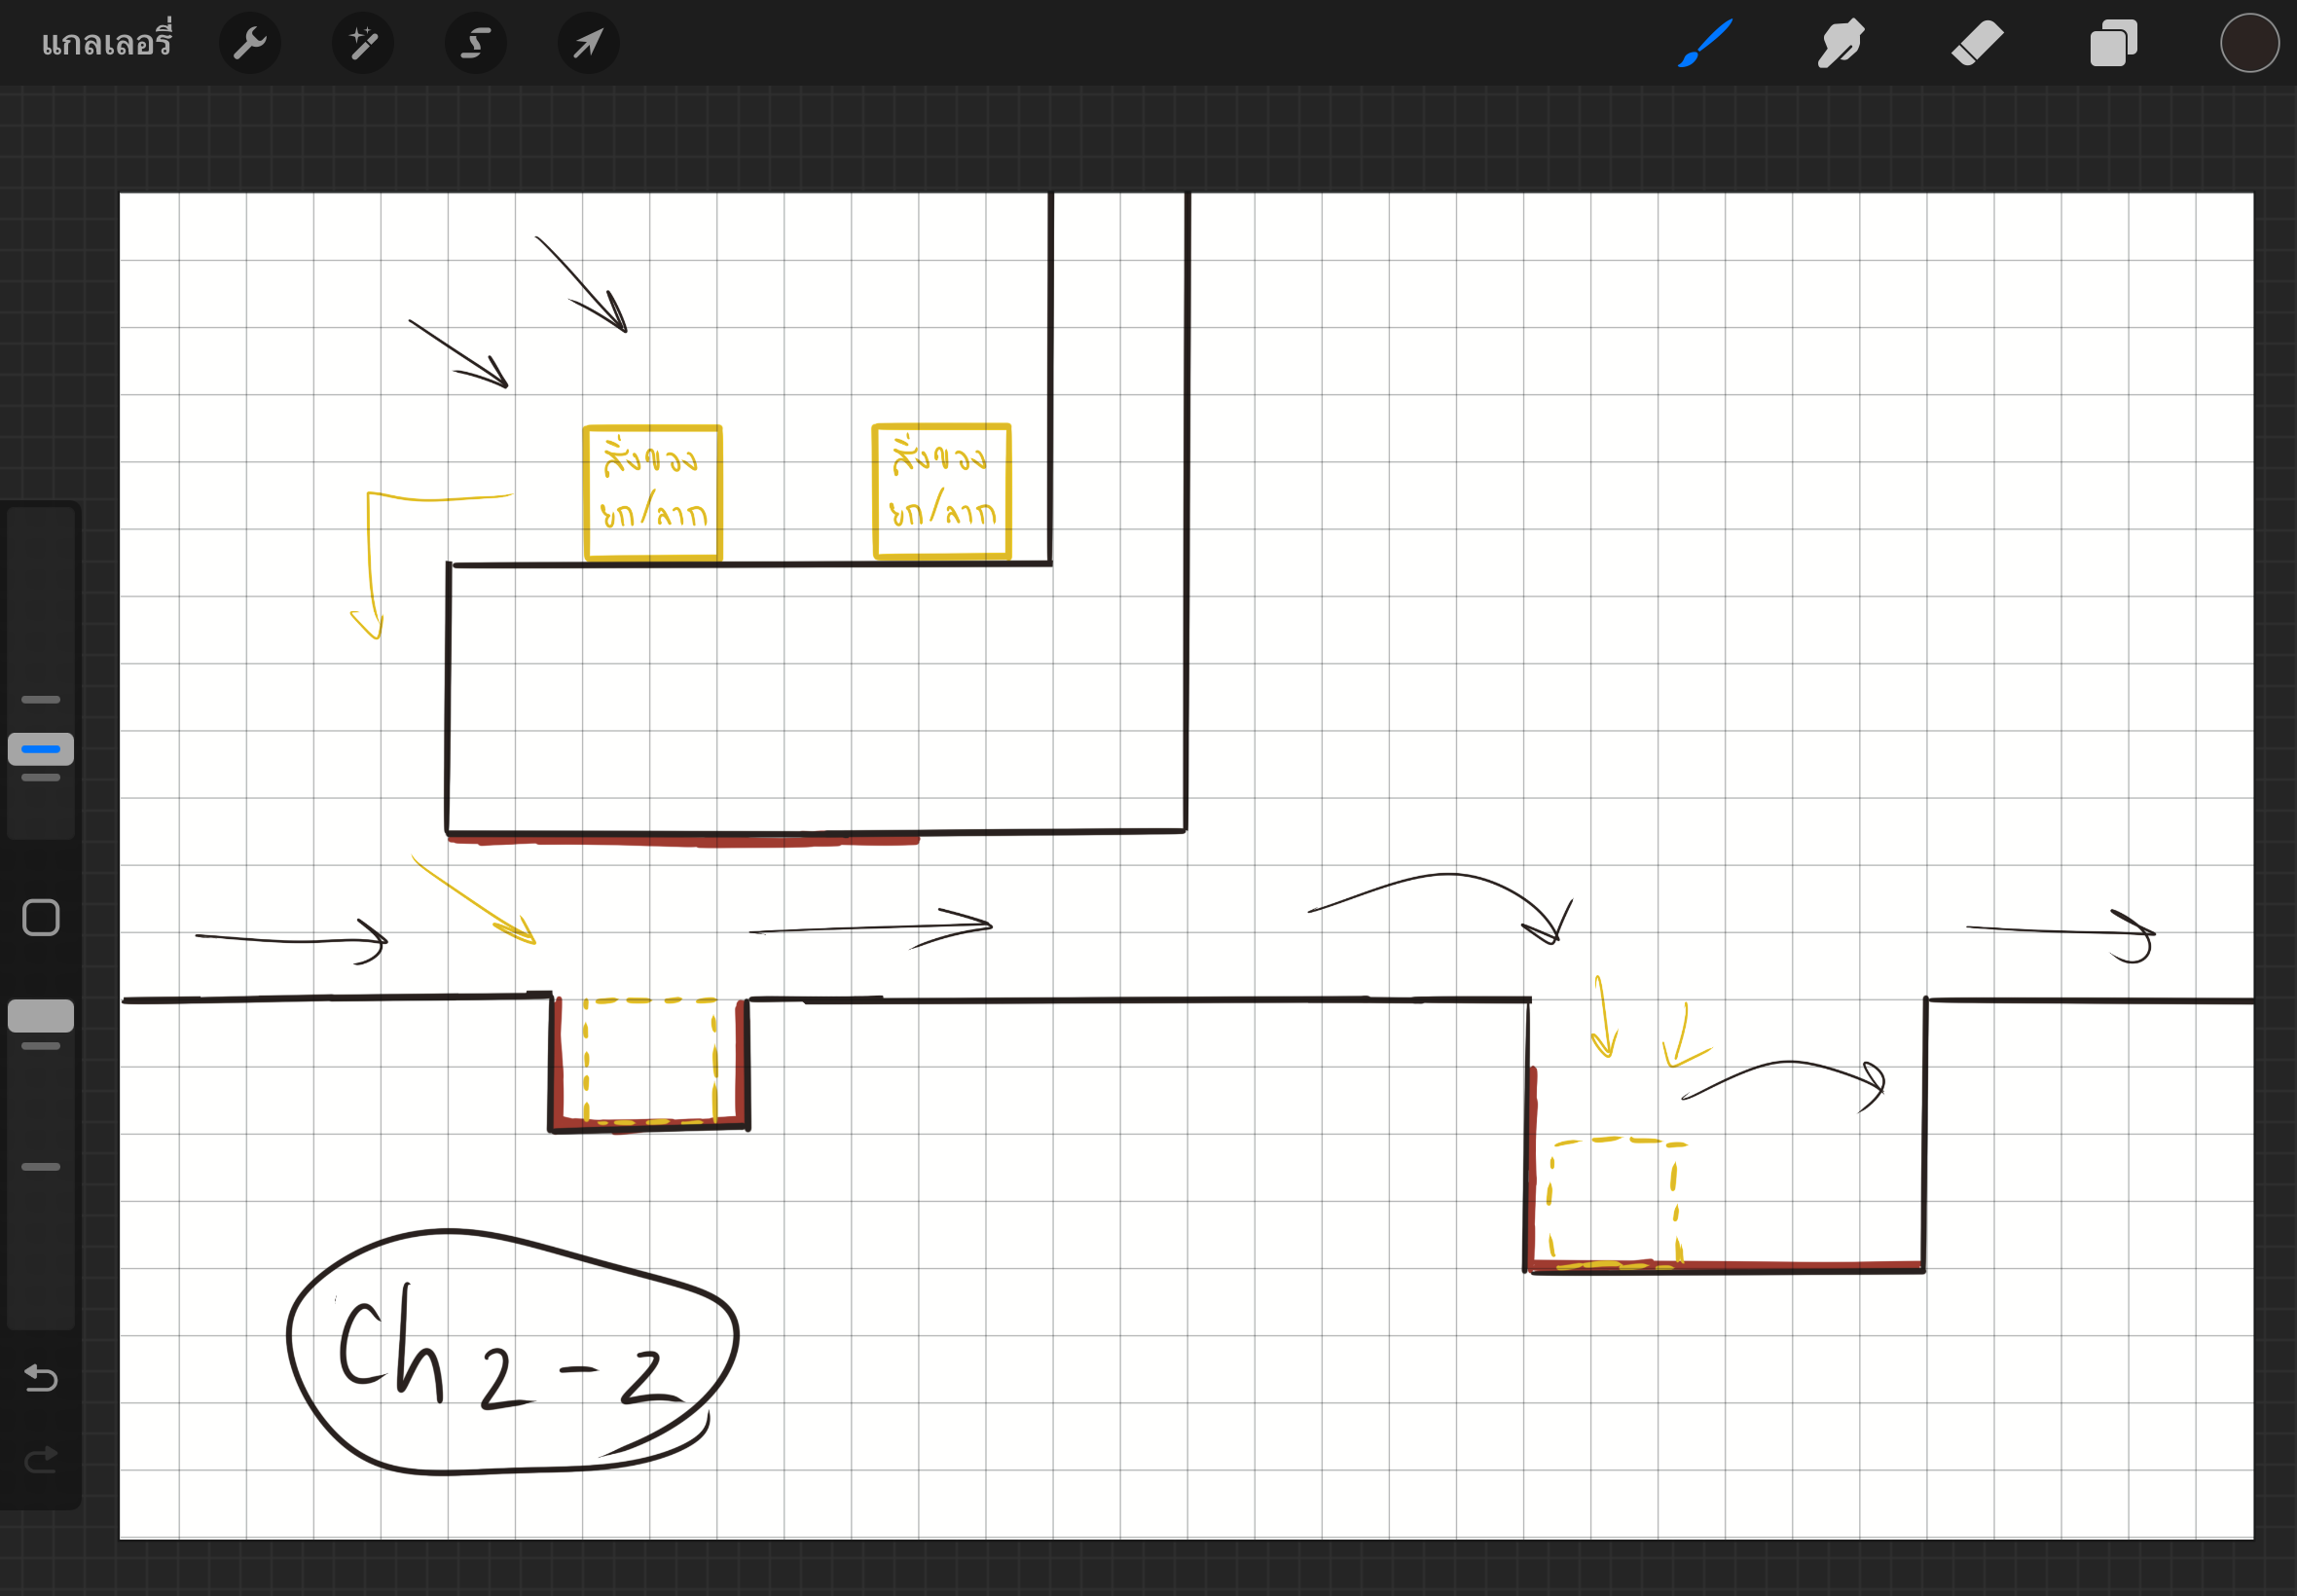 แกลเลอรี่
สิ่งของ
ยก/ลาก
สิ่งของ
ยก/ลาก
Ch 2 - 2